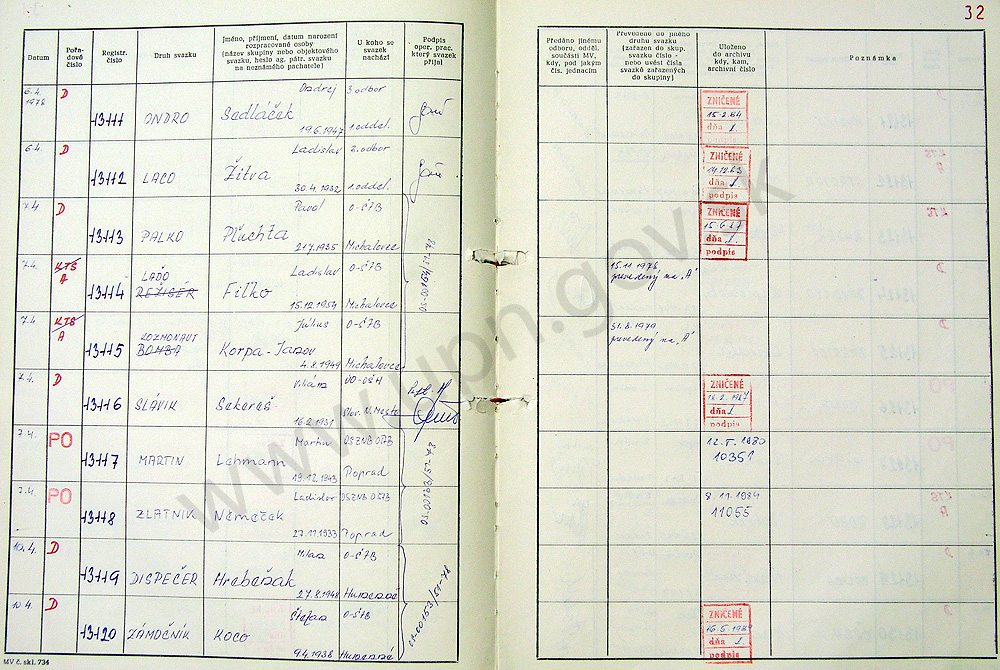 32
Datum
Pořadové číslo
Registr. číslo
Druh svazku
Jméno, příjmení, datum narození
rozpracované osoby
(název skupiny nebo objektového
svazku, heslo ag. pátr. svazku
na neznámého pachatele)
U koho se
svazek
nachází
Podpis
oper. prac.
který svazek
přijal
Předáno jinému
odboru, odděl.
součásti MV,
kdy, pod jakým
čís. jednacím
Převedeno do jiného
druhu svazku
(zařazen do skup.
svazku číslo -
nebo uvést čísla
svazků zařazených
do skupiny)
Uloženo
do archivu
kdy, kam,
archivní číslo
Poznámka
6.4. 1978 D 13111 ONDRO Ondrej Sedláček 19.6.1947 3.odbor 1.oddel.
ZNIČENÉ 15.2.84 dňa
6.4. D 13112 LACO Ladislav Žitva 30.4.1932 2.odbor 1.oddel.
ZNIČENÉ dňa podpis
7.4 D 13113 PALKO Pavol Pľuchta 21.7.1935 O-ŠTB Michalovce
ZNIČENÉ dňa podpis
7.4. KTS A 13114 LAĎO REŽISÉR Ladislav Fiľko 15.12.1954 O-ŠTB Michalovce
15.11.1978
prevedený na „A"
7.4 KTS A 13115 KOZMONAUT BOMBA Július Korpa-Jasov 4.8.1949 O-ŠTB Michalovce
31.8.1979
prevedený na „A"
7.4. D 13116 SLÁVIK Sekereš 16.2.1931 Slov. N. Mesto
ZNIČENÉ dňa podpis
7.4. PO 13117 MARTIN Martin Lehmann 19.12.1943 OSZNB OŠTB Poprad
12.5.1980
10351
7.4. PO 13118 ZLATNÍK Ladislav Nemeček 27.11.1933 OSZNB OŠTB Poprad
8.11.1984
11055
10.4. D 13119 DISPEČER Milan Hrebeňak 27.8.1948 O-ŠTB Humenné
10.4. D 13120 ZÁMOČNÍK Štefan KOCO 9.4.1938 O-ŠTB Humenné
ZNIČENÉ dňa podpis
MV č. skl. 734
www.upn.gov.sk